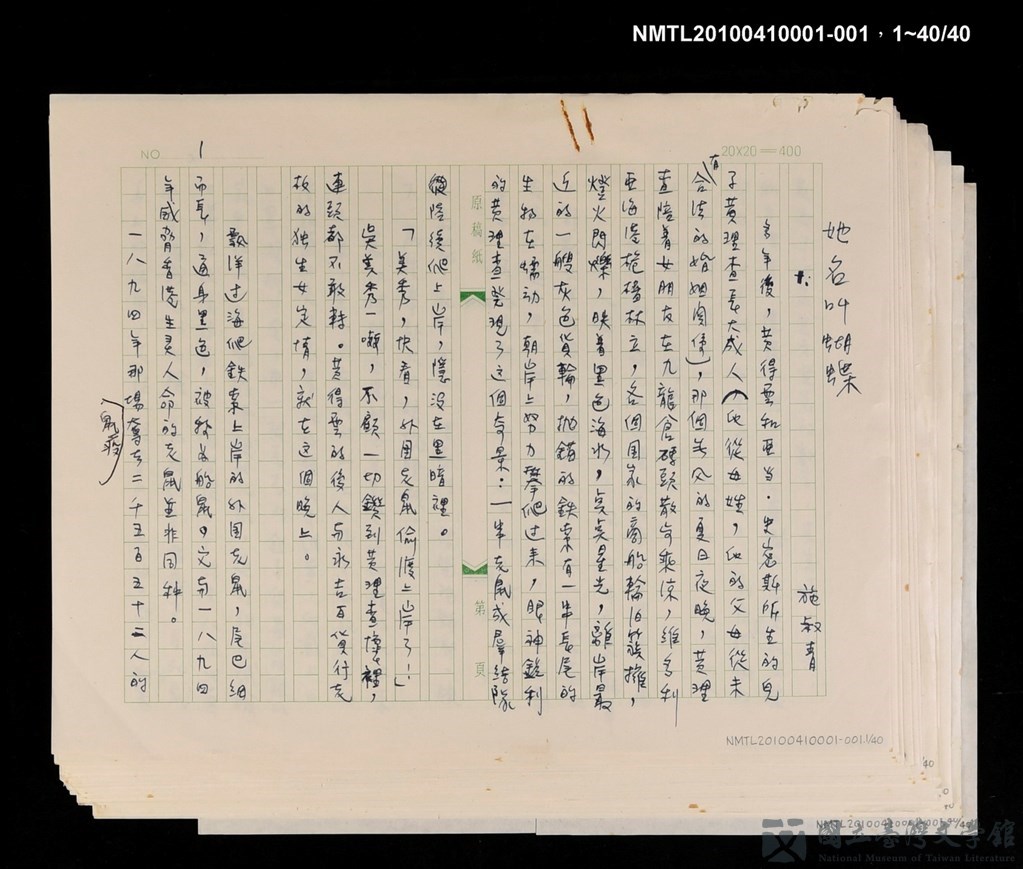 NMTL20100410001-001，1~40/40
NO 1
20×20=400
她名叫蝴蝶
施叔青
1.
多年後，黃得雲和亞當·史密斯所生的兒
子黃理查長大成人（他從母姓，他的父母從未
有合法的婚姻關係），那個無風的夏日夜晚，黃理
查陪着女朋友在九龍倉碼頭散步乘涼，維多利
亞海港桅檣林立，各個國家的商船輪泊簇擁，
燈火閃爍，映着黑色海水，點點星光，離岸最
近的一艘灰色貨輪，拋錨的鉄索有一串長尾的
生物在蠕動，朝岸上努力攀爬过来，眼神銳利
的黃理查發現了這個奇景：一串老鼠成羣結隊
原稿紙
第 頁
從陸後爬上岸，隱沒在黑暗裡。
「美秀，快看，外国老鼠偷渡上岸了！」
吳美秀一嚇，不顧一切鑽到黃理查懷裡，
連頭都不敢轉。黃得雲的後人与永吉百貨行老
板的独生女定情，就在這個晚上。
飄洋过海爬鉄索上岸的外国老鼠，尾巴細
而長，通身黑色，被称為船鼠。它与一八九四
年威脅香港生灵人命的老鼠並非同种。
一八九四年那場奪去二千五百五十二人的
鼠疫
NMTL20100410001-001.1/40
/40
國立臺灣文學館
National Museum of Taiwan Literature